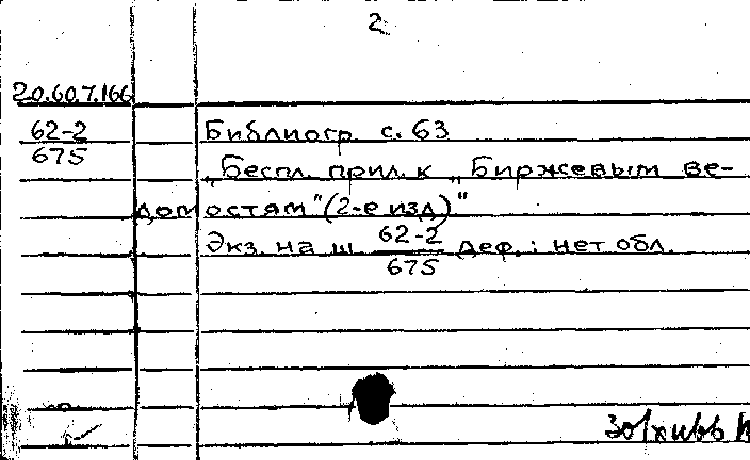 2
20.60.7.166
62-2
675
Библиогр. с. 63
"Беспл. прил. к „Биржевым ве-
домостям" (2-е изд)"
Экз. на ш 62-2
675 деф.: нет обл.